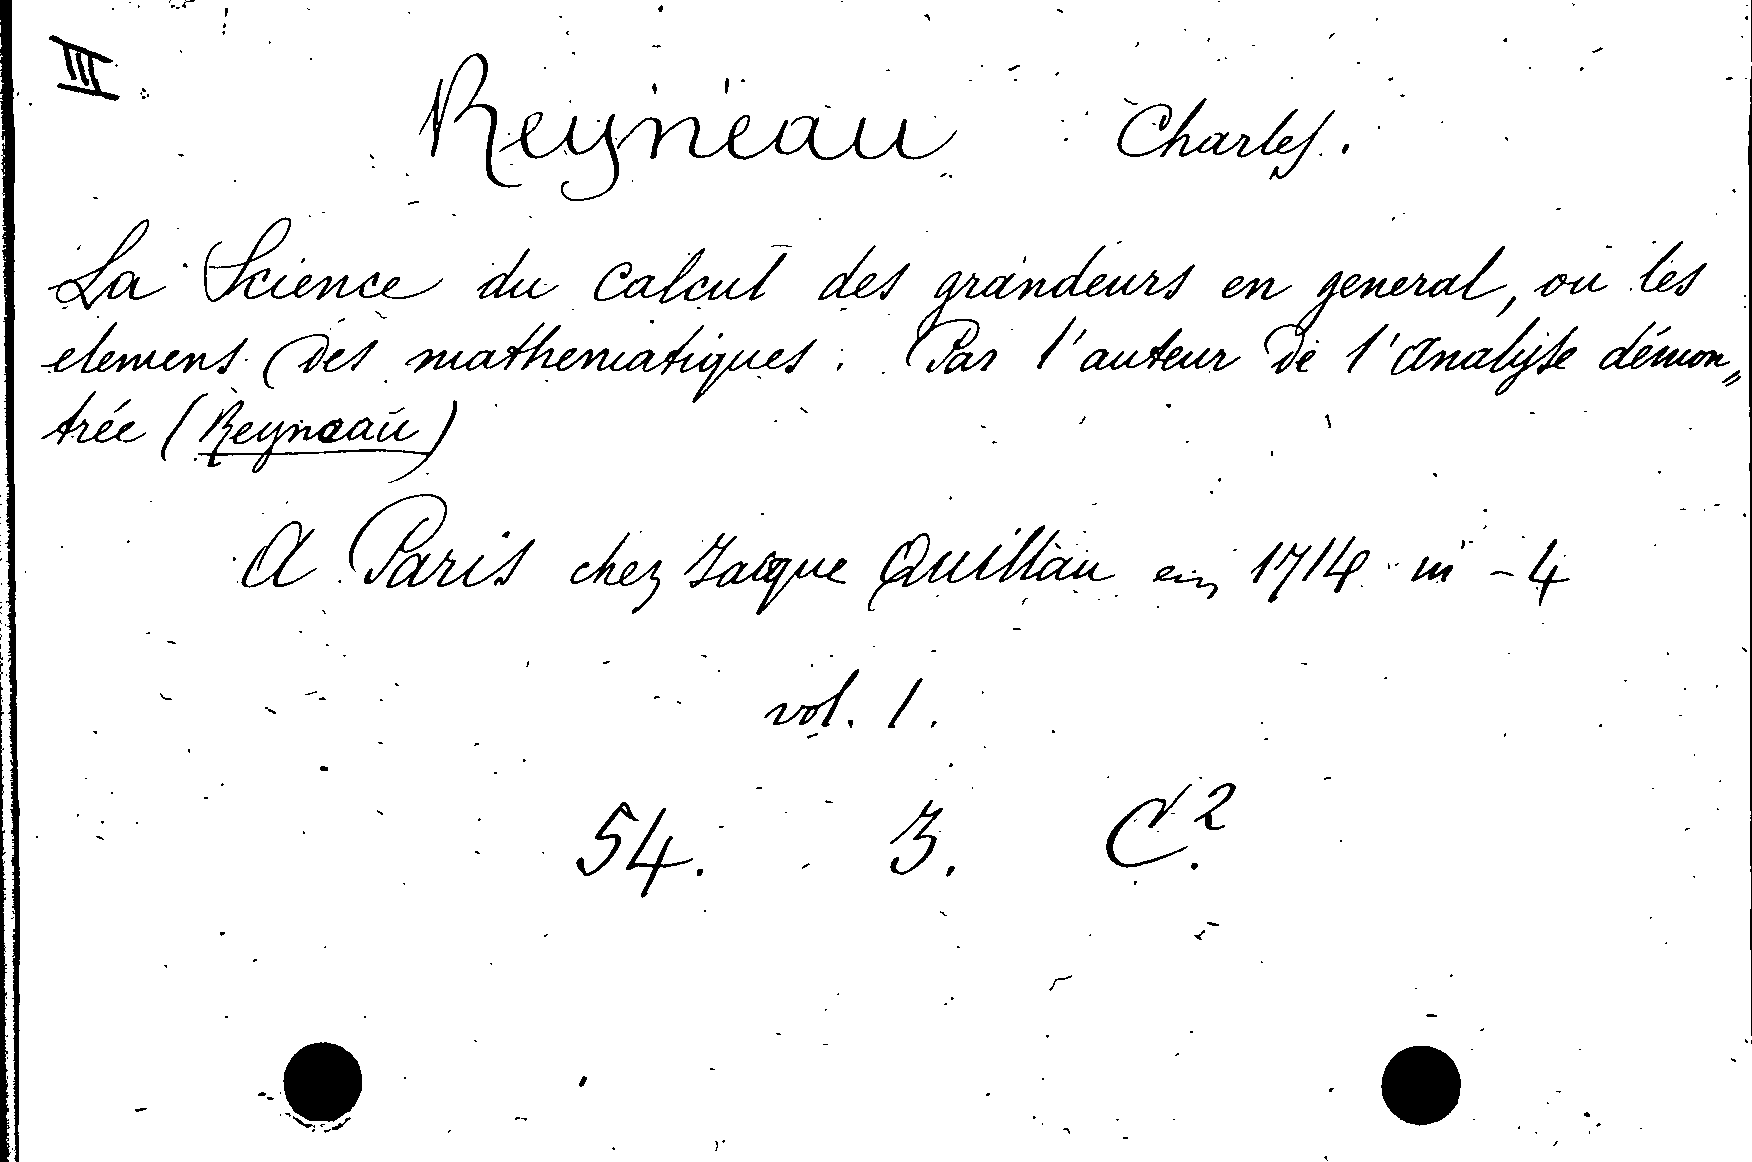 III
Reyneau Charles.
La Science du calcul des grandeurs en general, ou les
elemens des mathematiques. Par l'auteur de l'analyse démon„
trée (Reyneau)
A Paris chez Jacque Quillau en 1714 in-4
vol. 1.
54. 3. C².